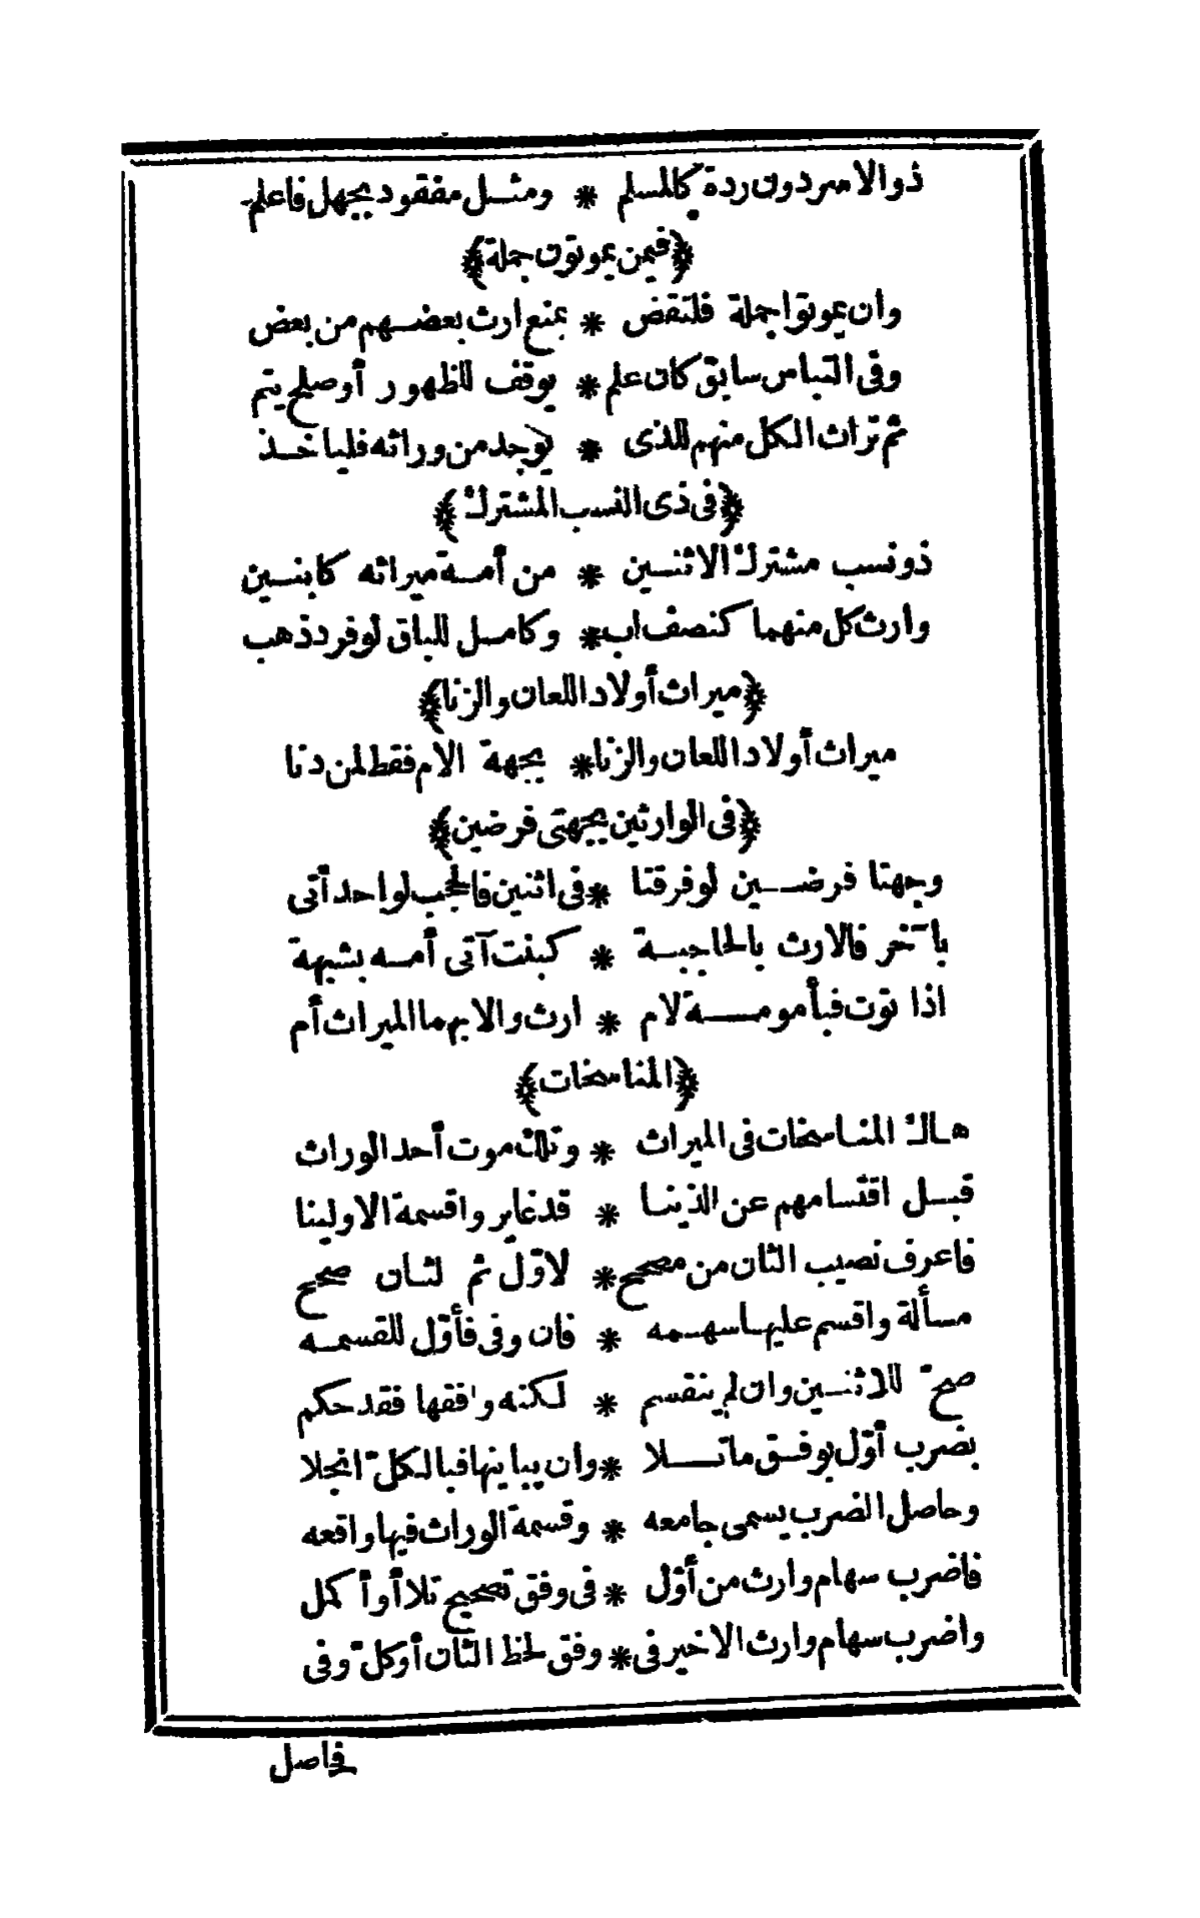 ذو الاسر دون ردة كالمسلم * ومثل مفقود بجهل فاعلم
﴿فيمن يموتون جملة﴾
وان يموتوا جملة فلتقض * بمنع ارث بعضهم من بعض
وفى التباس سابق كان علم * يوقف للظهور أو صلح يتم
ثم تراث الكل منهم للذى * يوجد من وراثه فليأخذ
﴿فى ذى النسب المشترك﴾
ذو نسب مشترك الاثنين * من أمة ميراثه كابنين
وارث كل منهما كنصف اب * وكامل للباق لو فرد ذهب
﴿ميراث أولاد اللعان والزنا﴾
ميراث أولاد اللعان والزنا * بجهة الام فقط لمن دنا
﴿فى الوارثين بجهتى فرضين﴾
وجهتا فرضين لو فرقتا * فى اثنين فالحجب لواحد أتى
بآخر فالارث بالحاجبة * كبنت آتى أمه بشبهة
اذا توت فبأمومة لام * ارث والابهما الميراث أم
﴿المناسخات﴾
هاك المناسخات فى الميراث * وتلك موت أحد الوراث
قبل اقتسامهم عن الذينا * قد غاير واقسمة الاولينا
فاعرف نصيب الثان من مصحح * لاول ثم لثان صحح
مسألة واقسم عليها سهمه * فان وفى فأول للقسمه
صح للاثنين وان لم ينقسم * لكنه وافقها فقد حكم
بضرب أول بوفق ما تلا * وان يباينها فبالكل انجلا
وحاصل الضرب يسمى جامعه * وقسمة الوراث فيها واقعه
فاضرب سهام وارث من أول * فى وفق تصحيح تلا أو أكمل
واضرب سهام وارث الاخير فى * وفق لحظ الثان أو كل وفى
فاصل